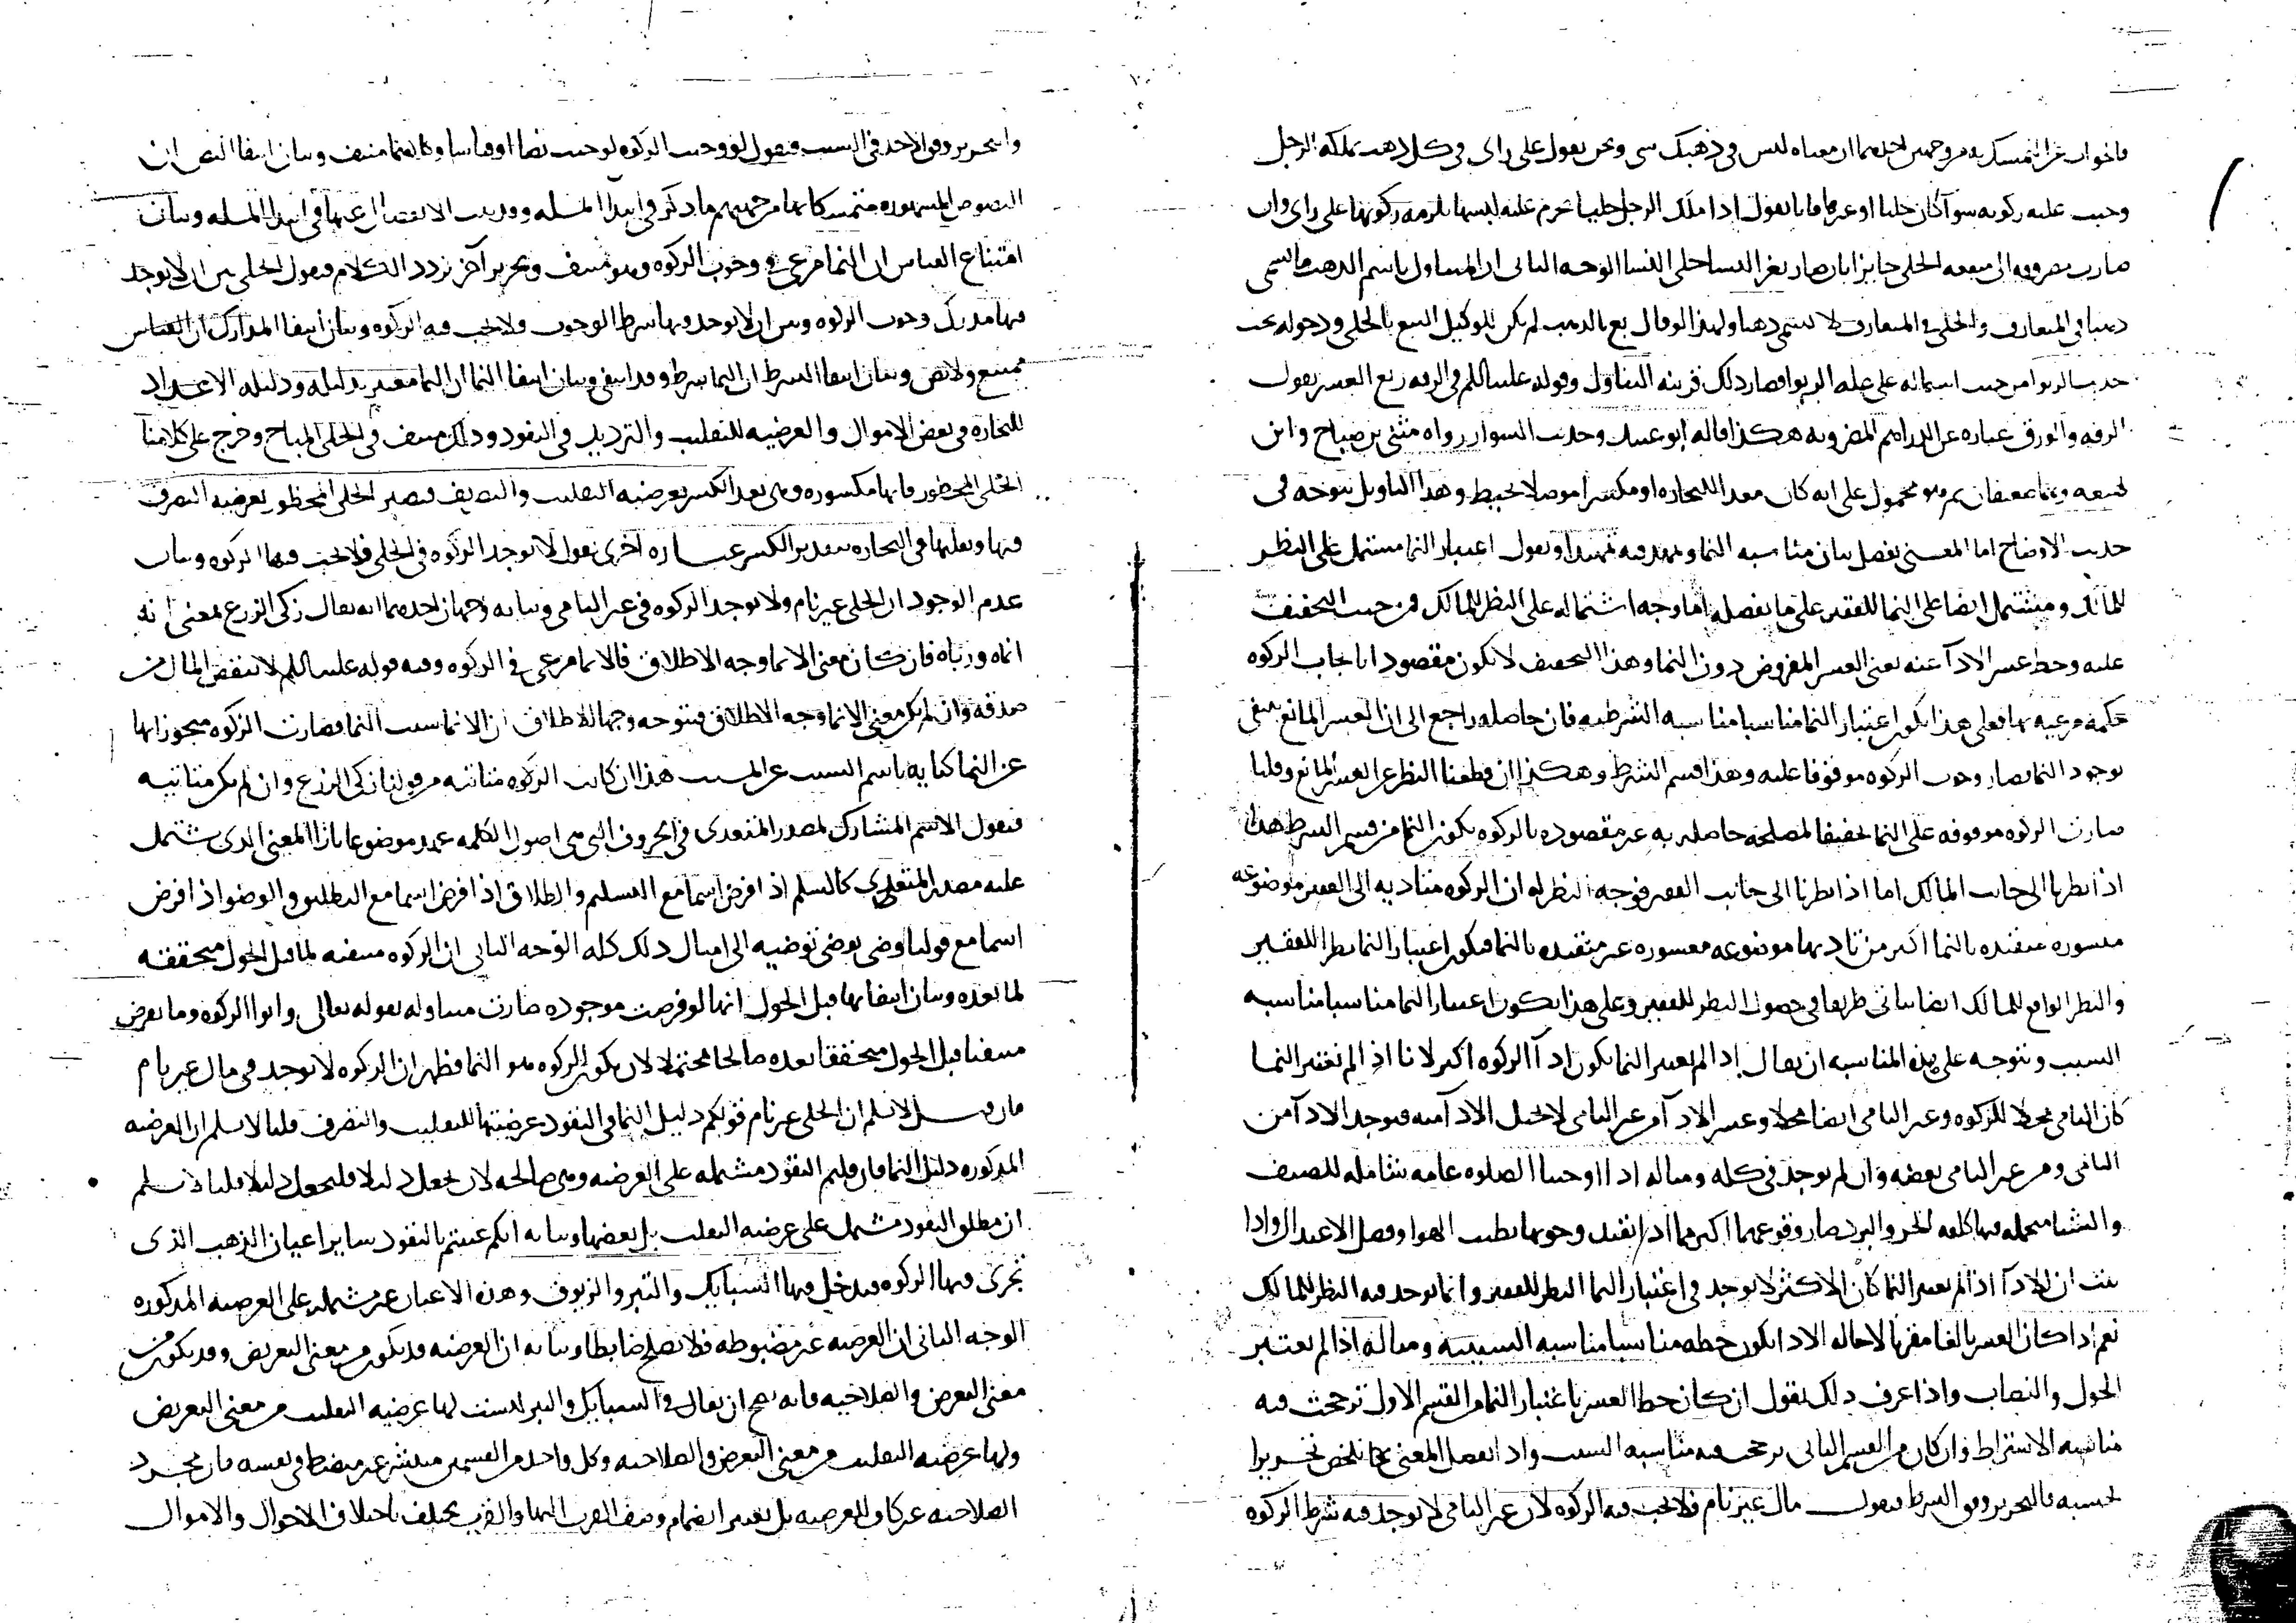 فالجواب عن التمسك به من وجهين احدهما ان معناه ليس في ذهبك شي ونحن نقول على راي في كل ذهب يملكه الرجل
وجب عليه زكوته سوآ كان حليا او غيره فانا نقول اذا ملك الرجل حليا يحرم عليه لبسها يلزمه زكوتها على راي وان
صارت مصروفه الى منفعه الحلي جايزا بان صار يعير النسا حلي النسا الوجه الثاني ان المتناول باسم الذهب ما يسمى
ذهبا في المتعارف والحلي في المتعارف لا يسمى ذهبا ولهذا لو قال بع بالذهب لم يكن للوكيل البيع بالحلي ودخوله تحت
حديث الربوا من حيث اشتماله على عله الربوا فصار ذلك قرينه التناول وقوله عليه السلم في الرقه ربع العشر نقول
الرقه والورق عباره عن الدراهم المضروبه هكذا قاله ابو عبيد وحديث السوار رواه مثنى بن صباح وابن
لهيعه وهما ضعيفان ثم هو محمول على انه كان معدا للتجاره او مكسرا وهذا التاويل يتوجه في
حديث الاوضاح اما المعنى بفصل بيان مناسبه النما ونمهد فيه تمهيدا ونقول اعتبار النما مشتمل على النظر
للمالك ومشتمل ايضا على النما للفقير على ما نفصله اما وجه اشتماله على النظر للمالك فمن حيث التخفيف
عليه وحط عسر الادآ عنه يعنى العسر المفروض دون النما وهذا التخفيف لا يكون مقصودا بايجاب الزكوه
حكمه مرعيه بها فعلى هذا يكون اعتبار النما مناسبا مناسبه الشرطيه فان حاصله راجع الى ان العسر المانع ينتفي
بوجود النما فصار وجوب الزكوه موقوفا عليه وهذا قسم الشرط وهكذا ان قطعنا النظر عن العسر المانع وقلنا
صارت الزكوه موقوفه على النما تحقيقا لمصلحه حاصله به غير مقصوده بالزكوه يكون النما من قسم الشرط هذا
اذا نظرنا الى جانب المالك اما اذا نظرنا الى جانب الفقير فوجه النظر له ان الزكوه متاديه الى الفقير موضوعه
ميسوره متقيده بالنما اكثر من تاديها موضوعه معسوره غير متقيده بالنما فيكون اعتبار النما نظرا للفقير
والنظر الواقع للمالك ايضا ياتي طريقا في حصول النظر للفقير وعلى هذا يكون اعتبار النما مناسبا مناسبه
السبب ويتوجه على هذه المناسبه ان يقال اذا لم يعتبر النما يكون ادآ الزكوه اكثر لانا اذا لم نعتبر النما
كان النامي محلا للزكوه وغير النامي ايضا محلا وعسر الادآ من غير النامي لا يخل الادآ منه فيوجد الادآ من
النامي ومن غير النامي بعضه وان لم يوجد في كله ومثاله اذا اوجبنا الصلوه عامه شامله للصيف
والشتا متحمله فيها كلفه الحر والبرد صار وقوعها اكثر مما اذا تقيد وجوبها بطيب الهوا وفصل الاعتدال واذا
ثبت ان الادآ اذا لم يعتبر النما كان الاكثر لا يوجد في اعتبار النما النظر للفقير وانما يوجد فيه النظر للمالك
نعم اذا كان العسر بالغا مقربا لاحاله الادا يكون حطه مناسبا مناسبه السببيه ومثاله اذا لم يعتبر
الحول والنصاب واذا عرف ذلك نقول ان كان حط العسر باعتبار النما من القسم الاول ترجحت فيه
مناسبه الاشتراط وان كان من القسم الثاني ترجحت فيه مناسبه السبب واذا انفصل المعنى عما تلخص تحريرا
بحسبه فالتحرير وفق الشرط فنقول مال غير نام فلا تجب فيه الزكوه لان غير النامي لا يوجد فيه شرط الزكوه
والتحرير وفق الاخذ في السبب فنقول لو وجبت الزكوه لوجبت نصا او قياسا وكلاهما منتف وبيان انتفا النص ان
النصوص المشهوره متمسكاتها من جهتهم ما ذكر في ابتدا المسله ووجدت الانفصال عنها في ابتدا المسله وبيان
امتناع القياس ان النما مرعي في وجوب الزكوه وهو منتف وتحرير آخر نردد الكلام فنقول الحلي بين ان لا يوجد
فيها مدرك وجوب الزكوه وبين ان لا يوجد فيها شرط الوجوب فلا تجب فيه الزكوه وبيان انتفا المدارك ان القياس
ممتنع ولا نص وبيان انتفا الشرط ان النما شرط وقد انتفى وبيان انتفا النما ان النما معتبر بدليله ودليله الاعداد
للتجاره في بعض الاموال والعرضيه للتقليب والترديد في النقود وذلك منتف في الحلي المباح وخرج على كلامنا
الحلي المحظور فانها مكسوره وهي بعد الكسر بعرضيه التقليب والتصريف فيصير الحلي المحظور بعرضيه التصرف
فيها وتقليبها في التجاره بتقدير الكسر عباره اخرى نقول لا توجد الزكوه في الحلي فلا تجب فيها الزكوه وبيان
عدم الوجود ان الحلي غير نام ولا توجد الزكوه في غير النامي وبيانه وجهان احدهما انه يقال زكى الزرع بمعنى انه
انماه ورباه فان كان معنى الانما وجه الاطلاق فالانما مرعي في الزكوه وفيه قوله عليه السلم لا ينقص المال من
صدقه وان لم يكن معنى الانما وجه الاطلاق فيتوجه وجها للاطلاق ان الانما سبب النما فصارت الزكوه متجوزا بها
عن النما كنايه باسم السبب عن المسبب هذا ان كانت الزكوه متاتيه من قولنا زكى الزرع وان لم يكن متاتيه
فنقول الاسم المشارك لمصدر المتعدى في الحروف التي هي اصول الكلمه عهد موضوعا بازا المعنى الذى يشتمل
عليه مصدر المتعدي كالسلم اذا فرض اسما مع التسليم والطلاق اذا فرض اسما مع التطليق والوضو اذا فرض
اسما مع قولنا وضى يوضى توضيه الى امثال ذلك كله الوجه الثاني ان الزكوه منتفيه لما قبل الحول متحققه
لما بعده وبيان انتفائها قبل الحول انها لو فرضت موجوده صارت متناوله بقوله تعالى واتوا الزكوه وما يفرض
منتفيا قبل الحول متحققا بعده صالحا محتملا لان يكون الزكوه هو النما فظهر ان الزكوه لا توجد في مال غير نام
فان قيل لا نسلم ان الحلي غير نام قولكم دليل النما في النقود عرضيتها للتقليب والتصرف قلنا لا نسلم ان العرضيه
المذكوره دليل النما فان قلتم النقود مشتمله على العرضيه وهي صالحه لان تجعل دليلا فلتجعل دليلا قلنا لا نسلم
ان مطلق النقود مشتمل على عرضيه التقليب بل بعضها وبيانه انكم عنيتم بالنقود ساير اعيان الذهب الذى
تجرى فيها الزكوه فيدخل فيها السبايك والتبر والزيوف وهذه الاعيان غير مشتمله على العرضيه المذكوره
الوجه الثاني ان العرضيه غير مضبوطه فلا تصلح ضابطا وبيانه ان العرضيه قد تكون من معنى التعريض وقد تكون من
معنى التعرض والصلاحيه فانه يصح ان يقال والسبايك والتبر ليست لها عرضيه التقليب من معنى التعريض
ولها عرضيه التقليب من معنى التعرض والصلاحيه وكل واحد من القسمين منتشر غير منضبط في نفسه فان مجرد
الصلاحيه غير كاف للعرضيه بل يعتبر انضمام وصف القرب اليها والقرب يختلف باختلاف الاحوال والاموال